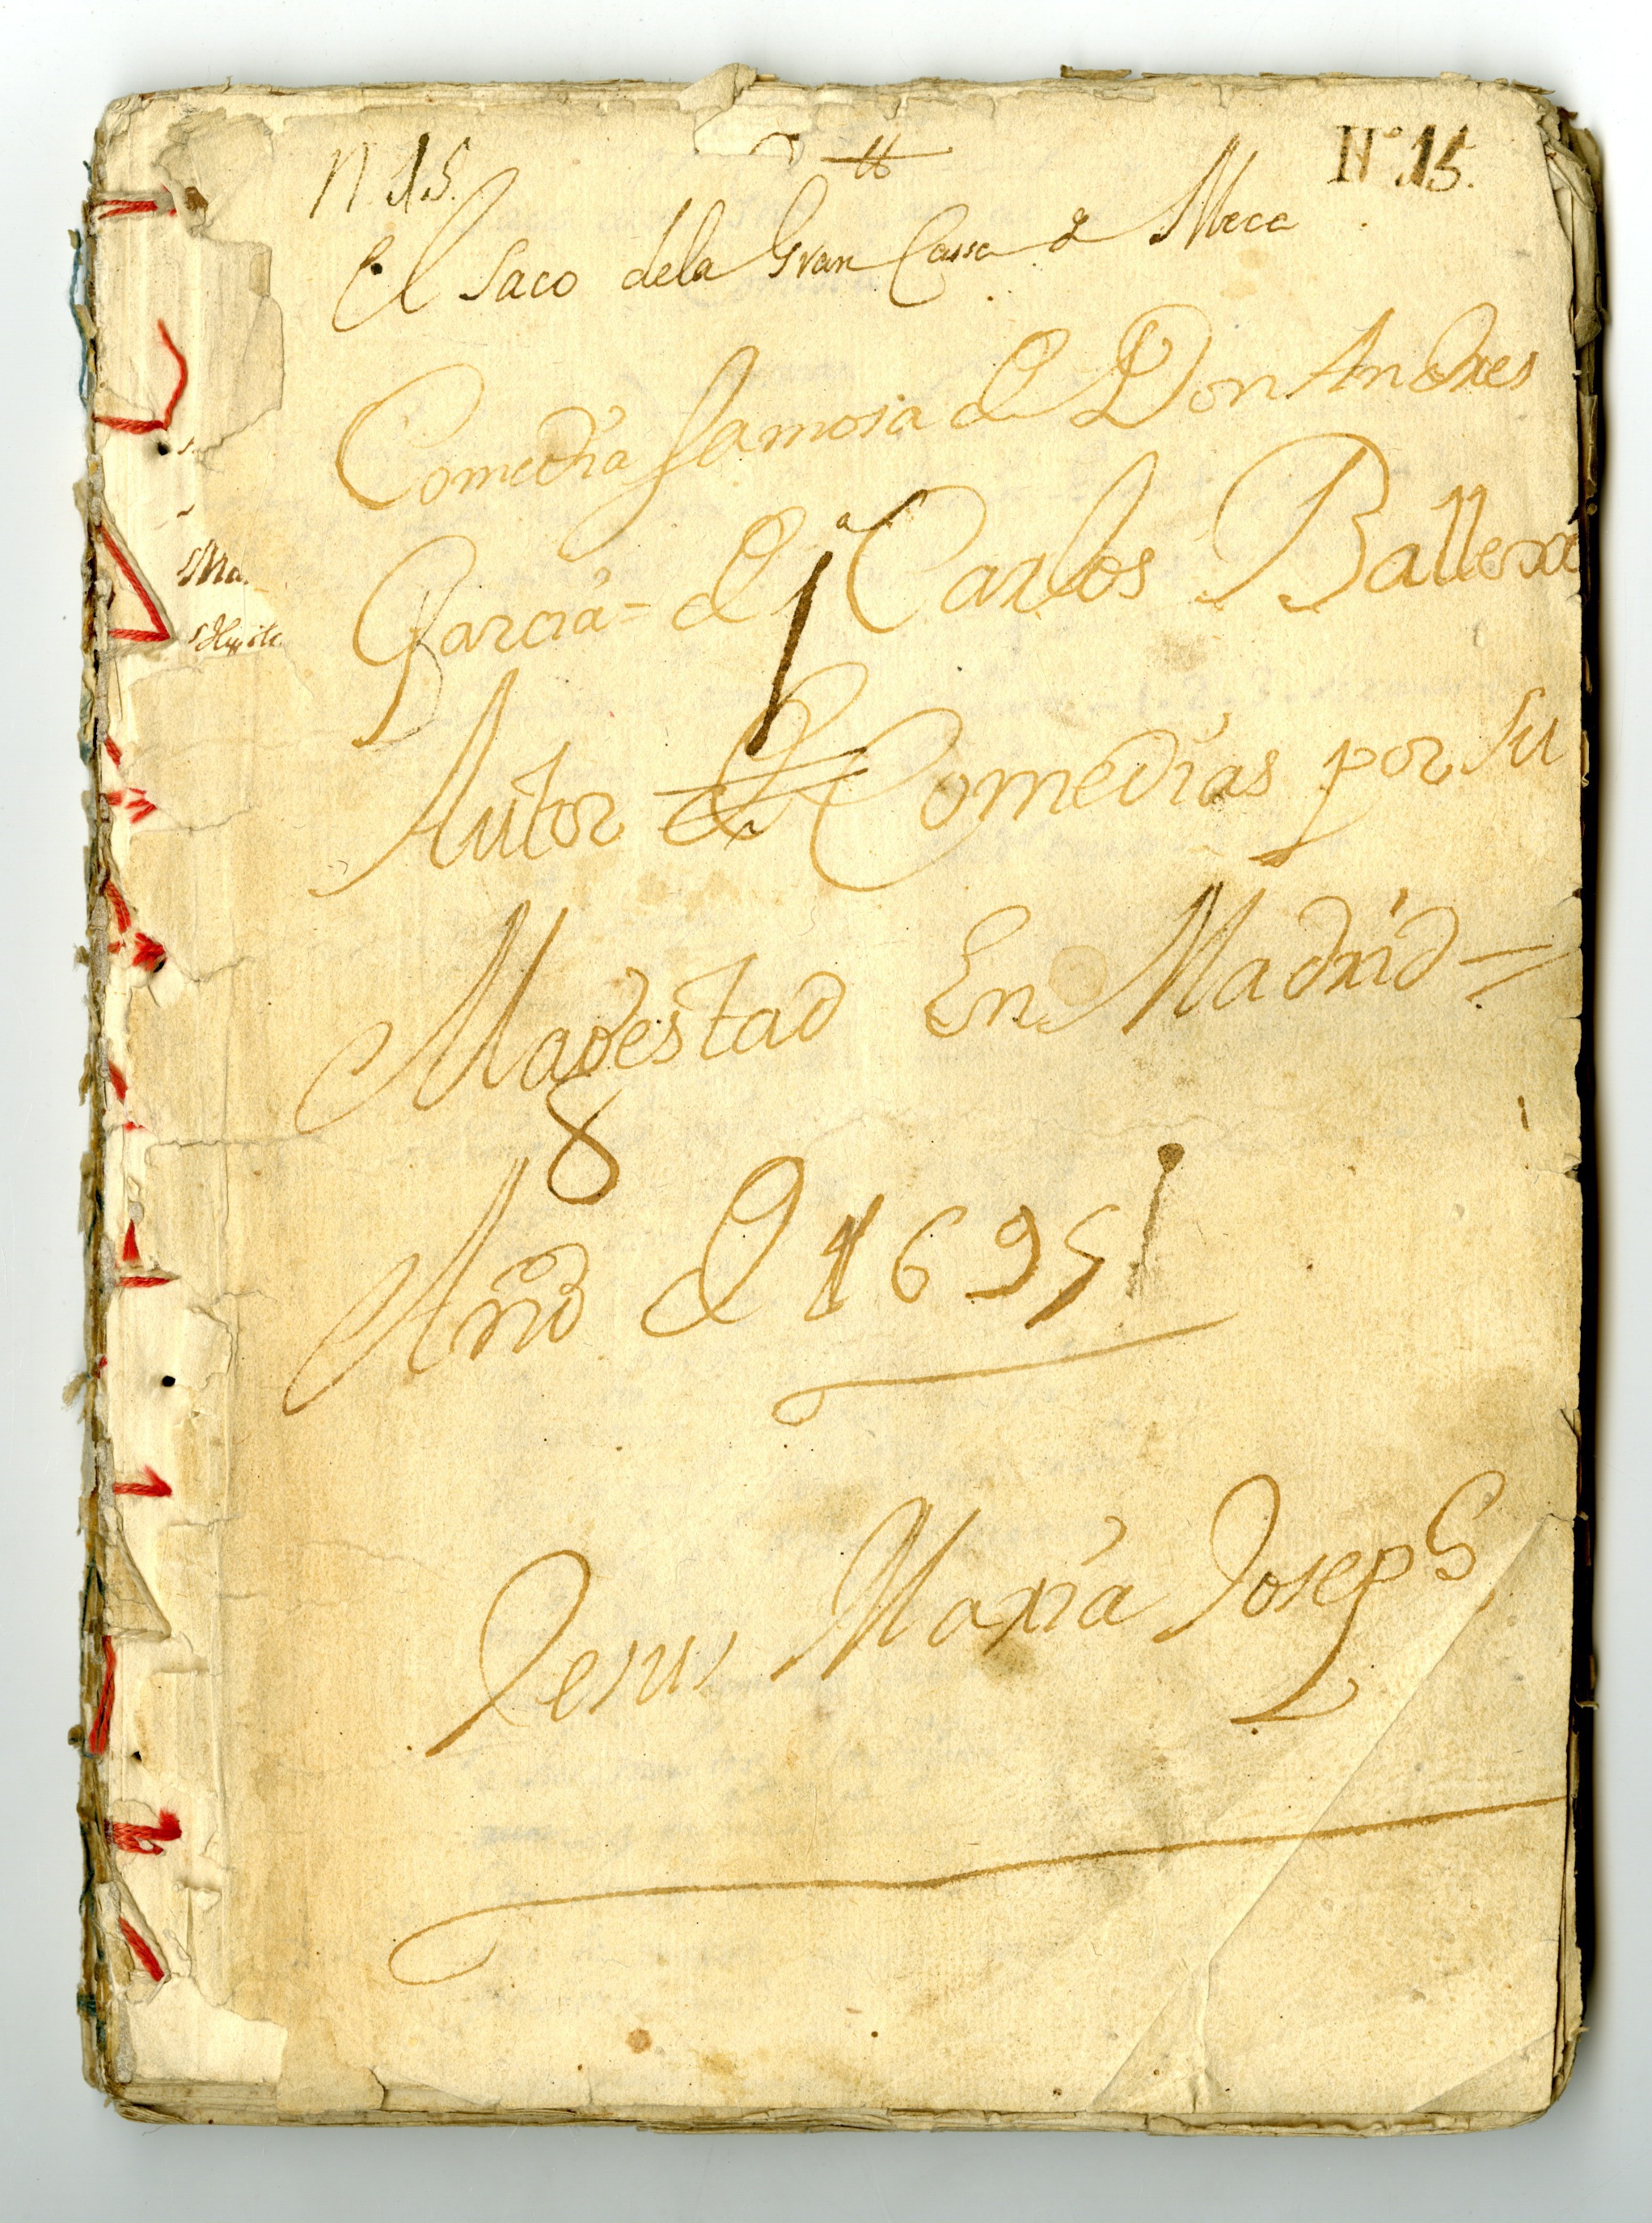 N 15.
tt
Nº 15.
El Saco dela Gran Cassa de Meca
Comedia famosa de Don Andres
Garcia = de Carlos Ballexo
1ª
Autor de Comedias por su
Magestad En Madrid =
8
Año de 1695
Jesus Maria Joseph